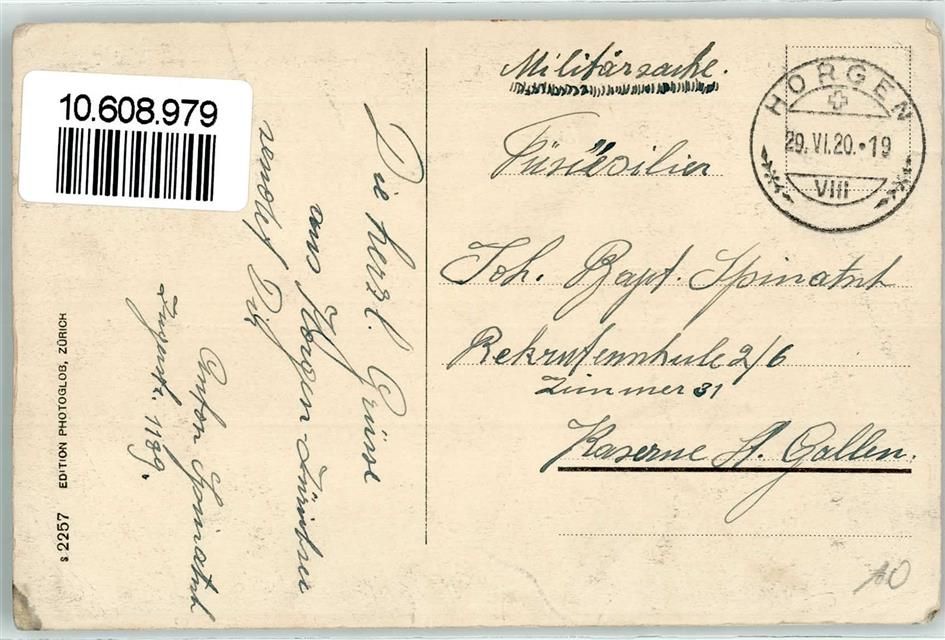 10.608.979
Die herzl. Grüsse
aus Horgen Zürichsee
sendet Dir
Anton Spinatsch
1189.
S 2257 EDITION PHOTOGLOB, ZÜRICH
Militärsache.
HORGEN
29.VI.20.•19
VIII
Füsilier
Joh. Bapt. Spinatsch
Rekrutenschule 2/6
Zimmer 31
Kaserne St. Gallen.
10